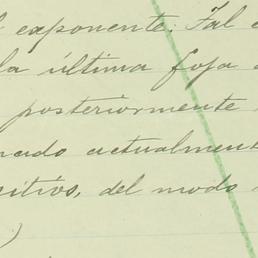 exponente. Tal
la última foja
posteriormente
actualment
sitivo, del modo
)